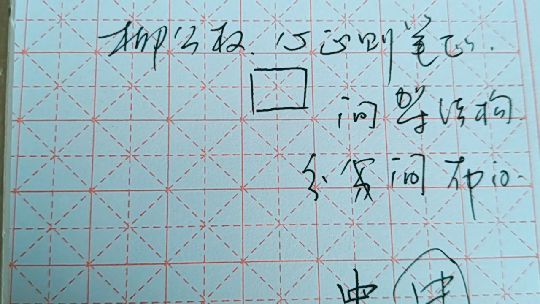 柳公权.心正则笔正.
间架结构
分家间布白.
中